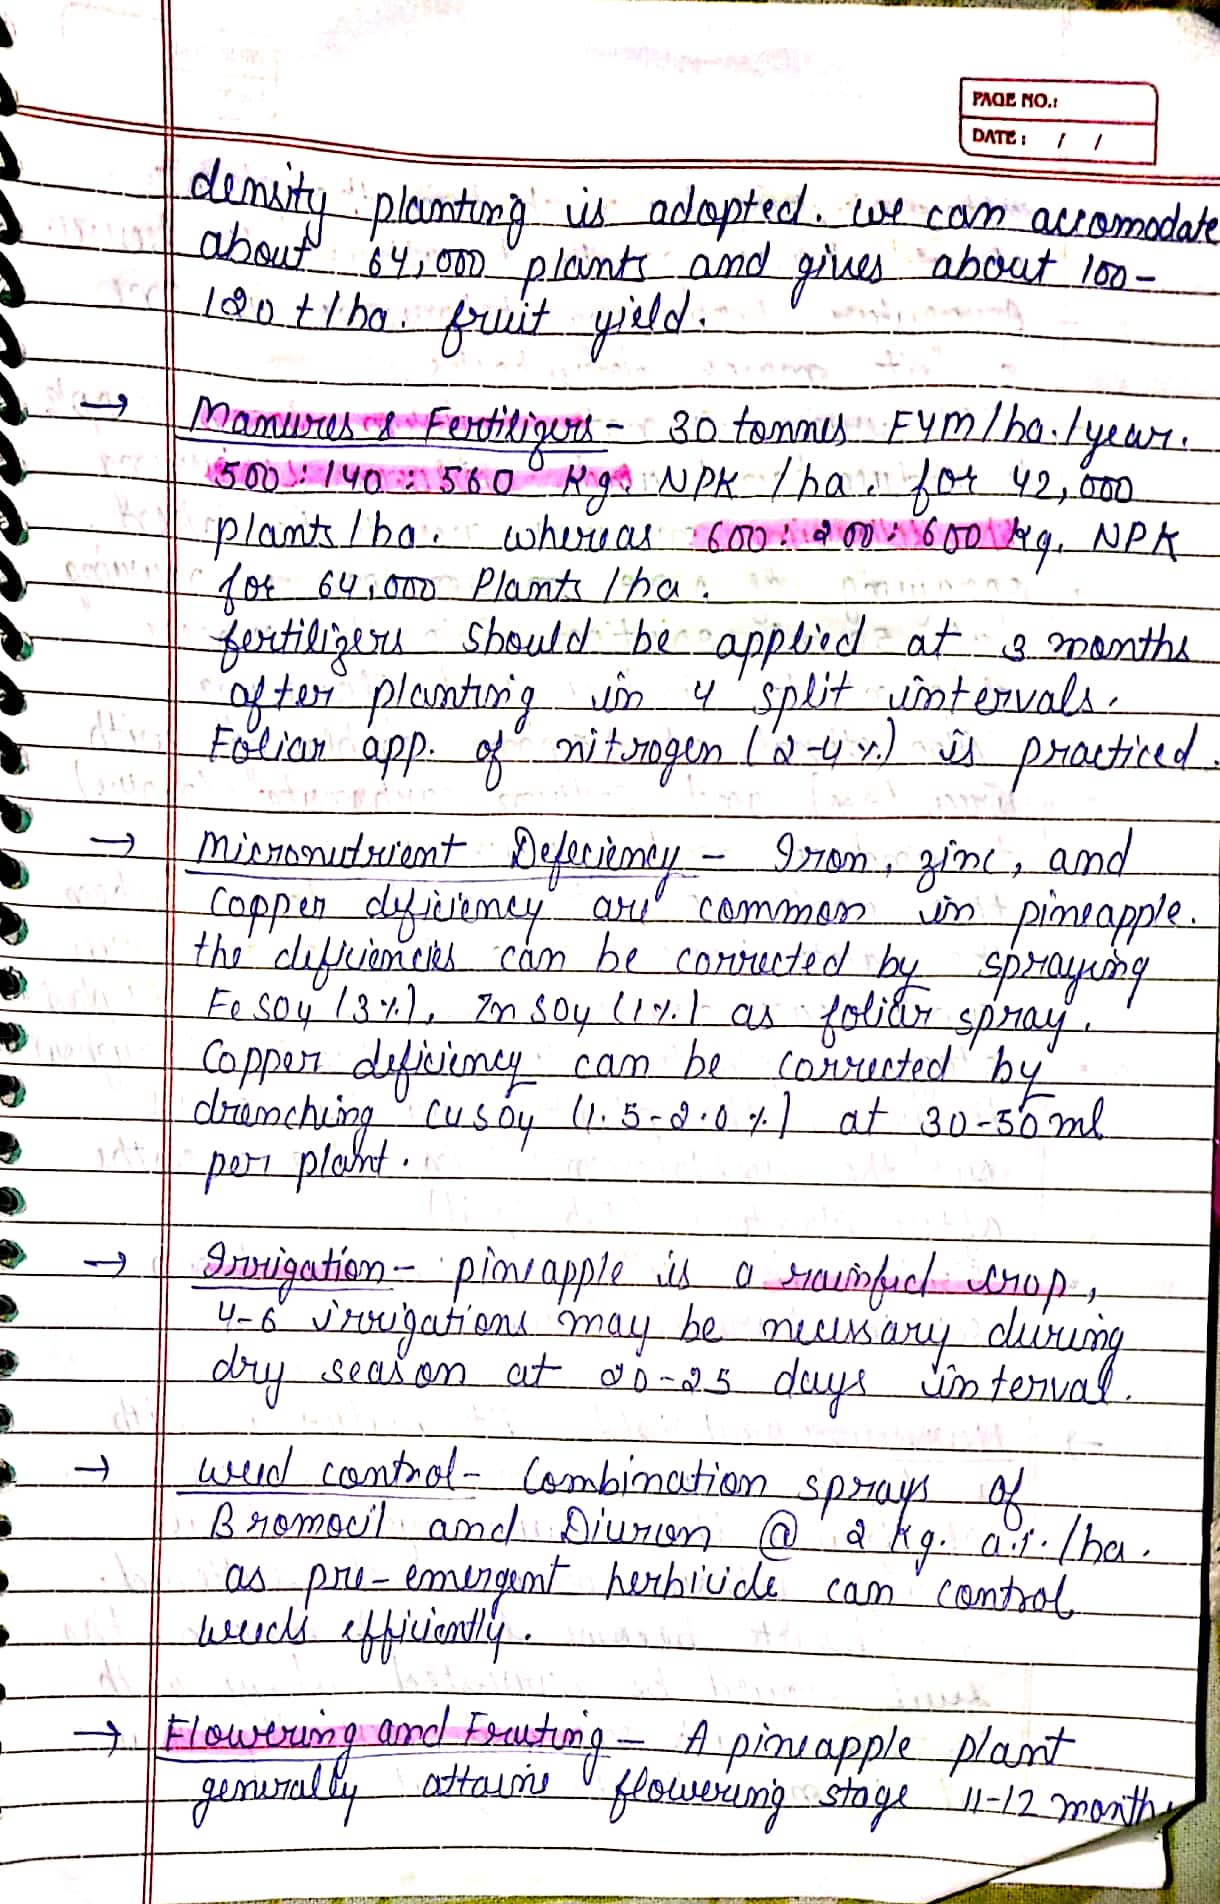 PAGE NO.:
DATE: / /
density planting is adopted. we can accomodate
about 64,000 plants and gives about 100-
120 t/ha. fruit yield.
→ Manures & Fertilizers - 30 tonnes FYM/ha./year.
500:140:560 Kg. NPK /ha. for 42,000
plants/ha. whereas 600:200:600 kg. NPK
for 64,000 Plants /ha.
fertilizers should be applied at 3 months
after planting in 4 split intervals.
Foliar app. of nitrogen (2-4%) is practiced.
→ Micronutrient Defeciency - Iron, zinc, and
Copper deficiency are common in pineapple.
the deficiencies can be corrected by spraying
FeSO4 (3%), ZnSO4 (1%) as foliar spray.
Copper deficiency can be corrected by
drenching CuSO4 (1.5-2.0%) at 30-50 ml
per plant.
→ Irrigation - pineapple is a rainfed crop,
4-6 irrigations may be necessary during
dry season at 20-25 days interval.
→ Weed control - Combination sprays of
Bromocil and Diuron @ 2 kg. a.i./ha.
as pre-emergent herbicide can control
weeds efficiently.
→ Flowering and Fruting - A pineapple plant
generally attains flowering stage 11-12 months